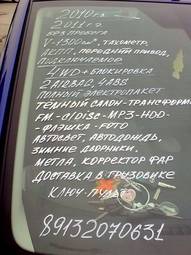 2010г.в.
2011г.в.
БЕЗ ПРОБЕГА
V-1300см³, ТАХОМЕТР,
АКПП, ПЕРЕДНИЙ ПРИВОД,
ПОДКЛЮЧАЕМОЕ
4WD + БЛОКИРОВКА
2 AIRBAG, 4ABS
ПОЛНЫЙ ЭЛЕКТРОПАКЕТ
ТЁМНЫЙ САЛОН-ТРАНСФОРМ
FM-CD/DISC-MP3-HDD-
-ФЛЭШКА-FOTO
АВТОСВЕТ, АВТОДОЖДЬ,
ЗИМНИЕ ДВОРНИКИ,
МЕТЛА, КОРРЕКТОР ФАР
ДОСТАВКА В ГРУЗОВИКЕ
КЛЮЧ-ПУЛЬТ
89132070631